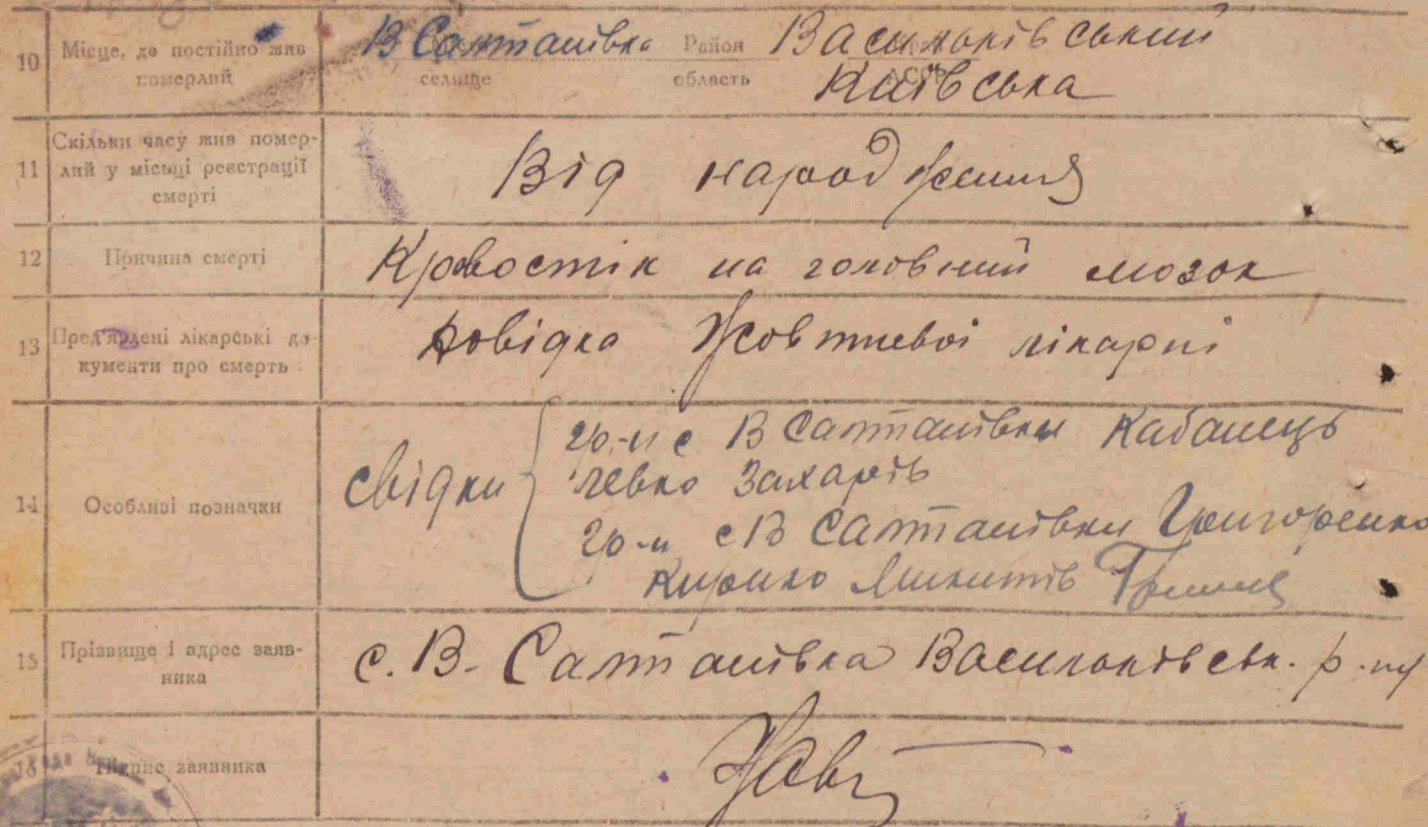 10 Місце, де постійно жив померлий
В Салтанівка Район Васильківський
селище область АССР
Київська
11 Скільки часу жив помер-
лий у місьці реєстрації
смерті
Від народження
12 Причина смерті
Кровостік на головний мозок
13 Пред'явлені лікарські до-
кументи про смерть
Довідка Жовтневої лікарні
14 Особливі позначки
свідки
гр-н с В Салтанівки Кабанець
Левко Захарів
гр-н с В Салтанівки Григоренко
Кирило Микитів
15 Прізвище і адрес заяв-
ника
с. В. Салтанівка Васильківськ. р-ну
16 Підпис заявника